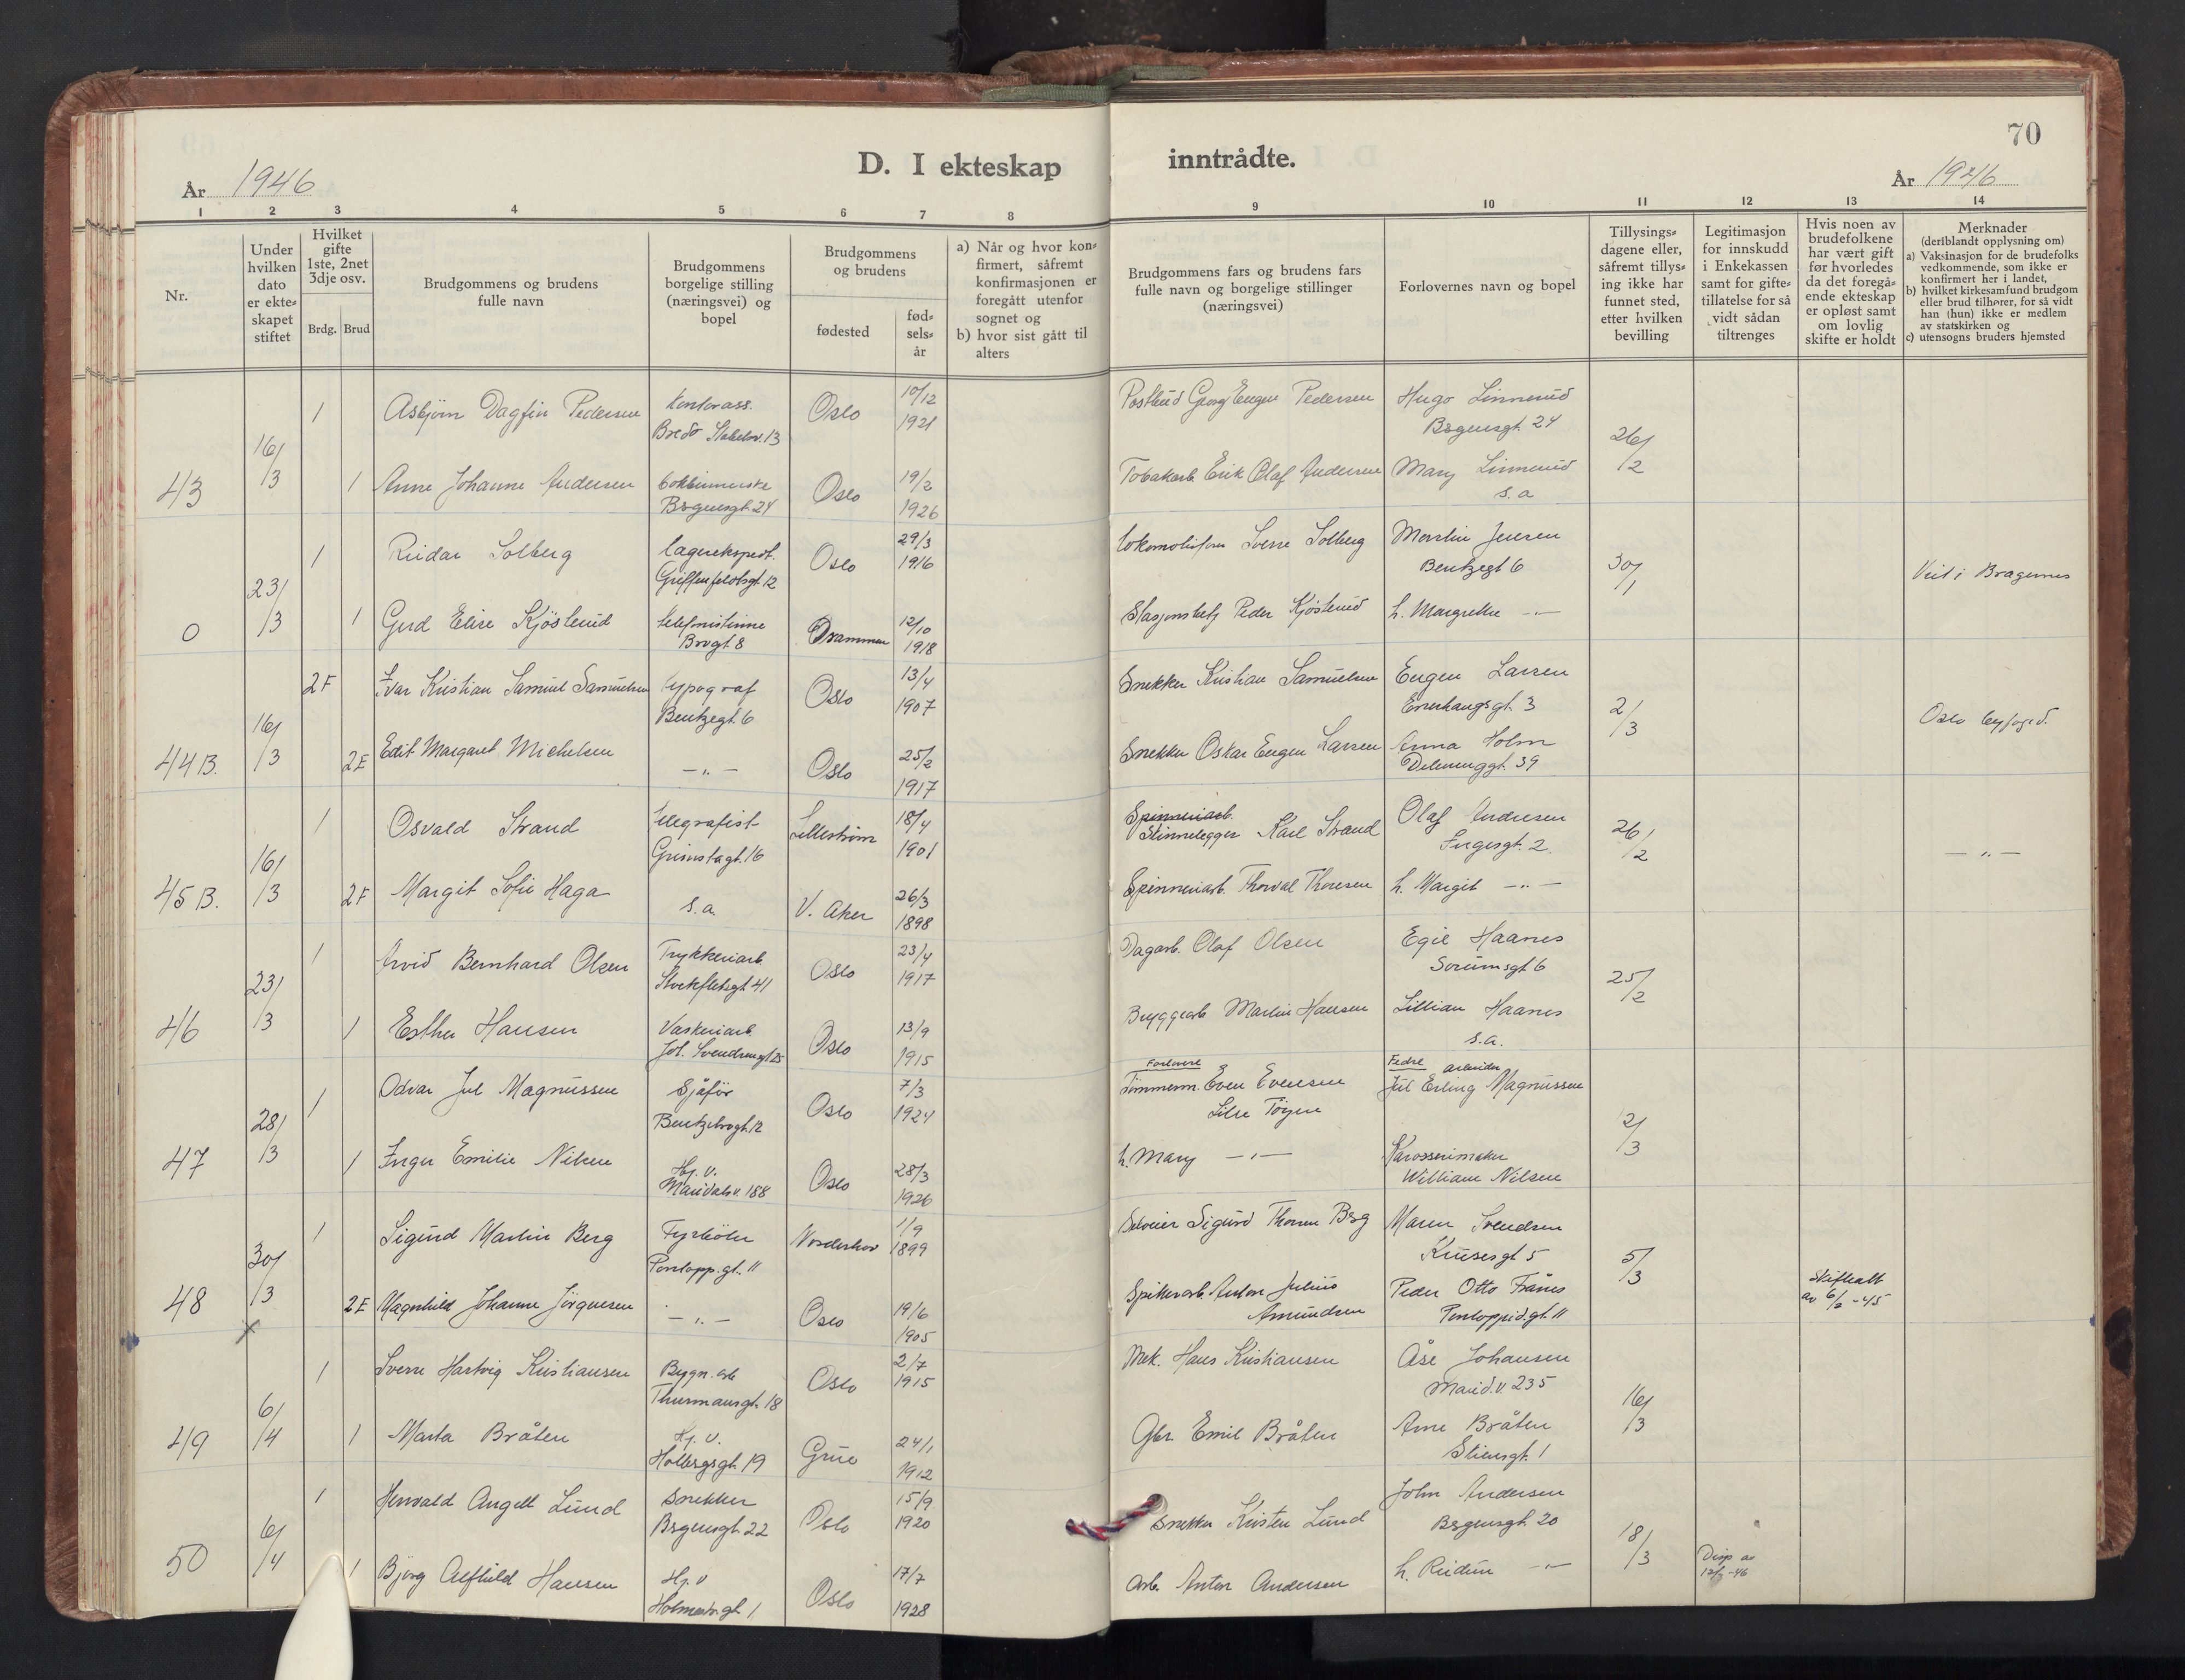 70
D. I ekteskap inntrådte.
År 1946
År 1946
1 2 3 4 5 6 7 8 9 10 11 12 13 14
Nr.
Under hvilken dato er ekteskapet stiftet
Hvilket gifte 1ste, 2net 3dje osv.
Brdg. Brud
Brudgommens og brudens fulle navn
Brudgommens borgelige stilling (næringsvei) og bopel
Brudgommens og brudens
fødested
fødselsår
a) Når og hvor konfirmert, såfremt konfirmasjonen er foregått utenfor sognet og
b) hvor sist gått til alters
Brudgommens fars og brudens fars fulle navn og borgelige stillinger (næringsvei)
Forlovernes navn og bopel
Tillysingsdagene eller, såfremt tillysing ikke har funnet sted, etter hvilken bevilling
Legitimasjon for innskudd i Enkekassen samt for giftetillatelse for så vidt sådan tiltrenges
Hvis noen av brudefolkene har vært gift før hvorledes da det foregående ekteskap er opløst samt om lovlig skifte er holdt
Merknader
(deriblandt opplysning om)
a) Vaksinasjon for de brudefolks vedkommende, som ikke er konfirmert her i landet,
b) hvilket kirkesamfund brudgom eller brud tilhører, for så vidt han (hun) ikke er medlem av statskirken og
c) utensogns bruders hjemsted
43 16/3
1 Asbjørn Dagfin Pedersen Kontorass. Oslo 10/12 1921 Postbud Georg Eugen Pedersen Hugo Linnerud Bergensgt. 24 26/2
1 Anne Johanne Andersen Bergensgt. 24 Oslo 19/2 1926 Tobakarb. Erik Olaf Andersen Mary Linnerud s. a
0 23/3
1 Reidar Solberg lagerekspedt. Griffenfeldtsgt. 12 Oslo 29/3 1916 Sverre Solberg Jensen Bentzegt 6 30/1 Viet i Bragernes
1 Gerd Elise Kjøsterud telefonistinne Brogt. 8 Drammen 12/10 1918 Stasjonsbetj. Peder Kjøsterud h. Margrethe —"—
44 B. 16/3
2 F Ivar Kristian Samuel Samuelsen typograf Bentzegt. 6 Oslo 13/4 1907 Snekker Kristian Samuelsen Eugen Larsen Enerhaugsgt. 3 2/3 Oslo byfogd.
2 F Edit Margaret Michelsen —"— Oslo 25/2 1917 Snekker Oskar Eugen Larsen Anna Holm Delenenggt. 39
45 B. 16/3
1 Osvald Strand telegrafist Grimstadgt. 16 Lillestrøm 18/4 1901 Spinneriarb. Skinnelegger Karl Strand Olaf Andresen Ingesgt. 2. 26/2 —"—
2 F Margit Sofie Haga s. a. V. Aker 26/3 1898 Spinneriarb. Thorval Thoresen h. Margit —"—
46 23/3
1 Arvid Bernhard Olsen Trykkeriarb. Stockfletsgt. 41 Oslo 23/4 1917 Dagarb. Olaf Olsen Egil Haanes Sørumsgt 6 25/2
1 Esther Hansen Vaskeriarb. Joh. Svendsensgt 25 Oslo 13/9 1915 Bryggearb. Martin Hansen Lillian Haanes s. a.
47 28/3
1 Odvar Jul Magnussen Sjåfør Bentzebrogt. 12 Oslo 7/3 1924 Forlovere Tømmerm. Even Evensen Fedre arbeider Jul Erling Magnussen 2/3
1 Inger Emilie Nilsen Hj. v. Maridalsv. 188 Oslo 28/3 1926 h. Mary —"— Karosserimaker William Nilsen
48 30/3
1 Sigurd Martin Berg Fyrbøter Pontopp. gt. 11 Norderhov 1/9 1899 Sigurd Thorsen Berg Maren Svendsen Krusesgt 5 5/3
2 F Magnhild Johanne Jørgensen —"— Oslo 19/6 1905 Anton Julius Amundsen Peder Otto Frånes Pontoppid. gt. 11 Skifteatt av 6/2-45
49 6/4
1 Sverre Hartvig Kristiansen Bygn. arb Thurmannsgt. 18 Oslo 2/7 1915 Mek. Hans Kristiansen Åse Johansen Marid. v. 235 16/3
1 Marta Bråten Hj. v. Holbergsgt. 19 Grue 24/1 1912 Gbr. Emil Bråten Arne Bråten Stiensgt. 1
50 6/4
1 Henvald Angell Lund Snekker Bergensgt. 22 Oslo 15/9 1920 Snekker Kristen Lund John Andersen Bergensgt. 20 18/3
1 Bjørg Alfhild Hansen Hj. v Oslo 17/7 1928 Arb. Anton Andersen h. Reidun —"— Disp av